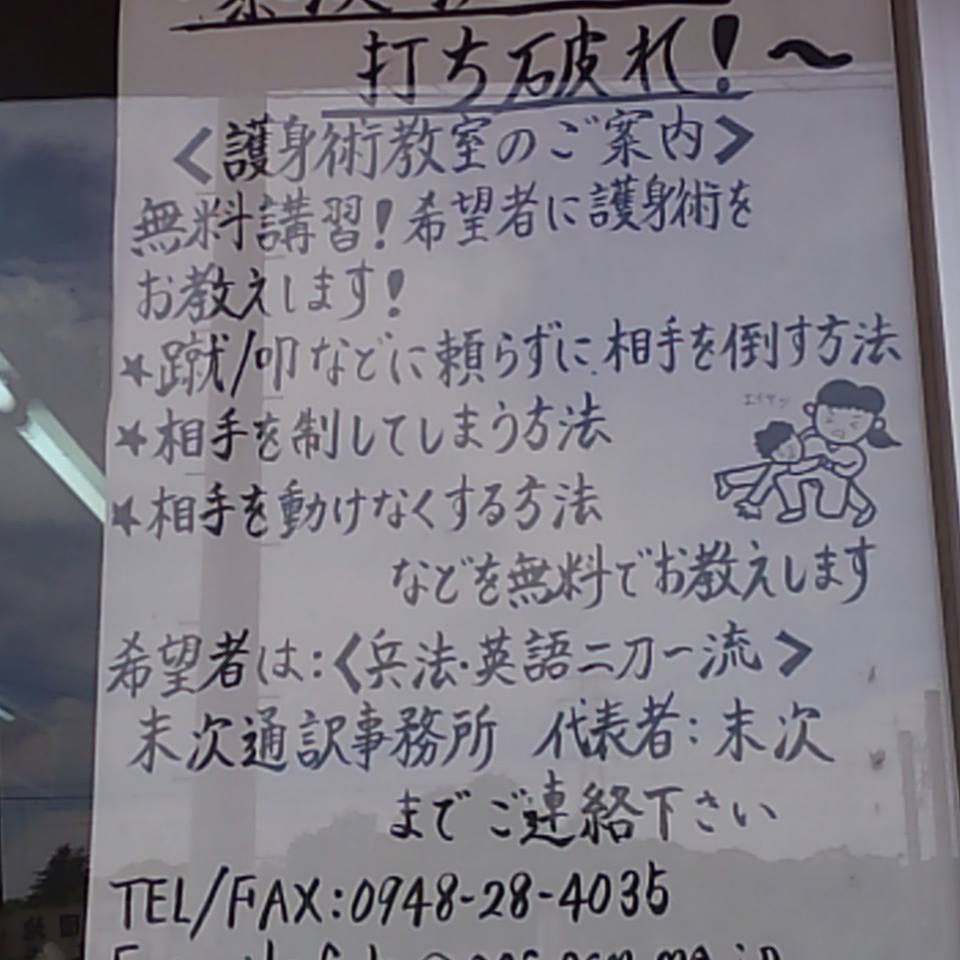 打ち破れ!～
<護身術教室のご案内>
無料講習!希望者に護身術を
お教えします!
★蹴/叩などに頼らずに相手を倒す方法
エイサッ
★相手を制してしまう方法
★相手を動けなくする方法
などを無料でお教えします
希望者は:<兵法・英語二刀一流>
末次通訳事務所 代表者:末次
までご連絡下さい
TEL/FAX:0948-28-4035